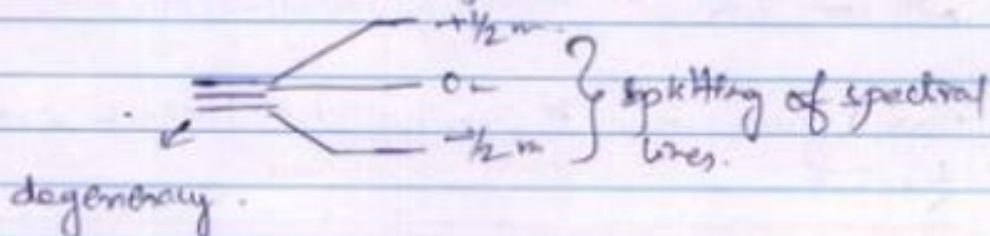 +1/2 m
0
-1/2 m
} splitting of spectral
lines.
degeneracy.